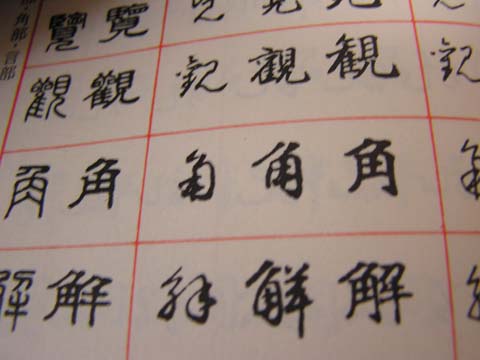 角部・言部
覽 覽
觀 觀 観 観 観
角 角 角 角 角
解 解 解 觧 解